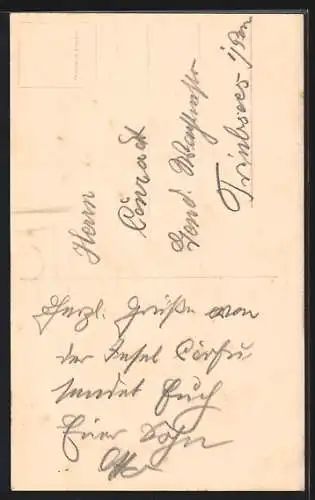 Herrn
Conrad
Gend. Wachtmstr
Triebsees i/Pom
Herzl. Grüße von
der Insel Corfu
sendet Euch
Euer Sohn
Otto